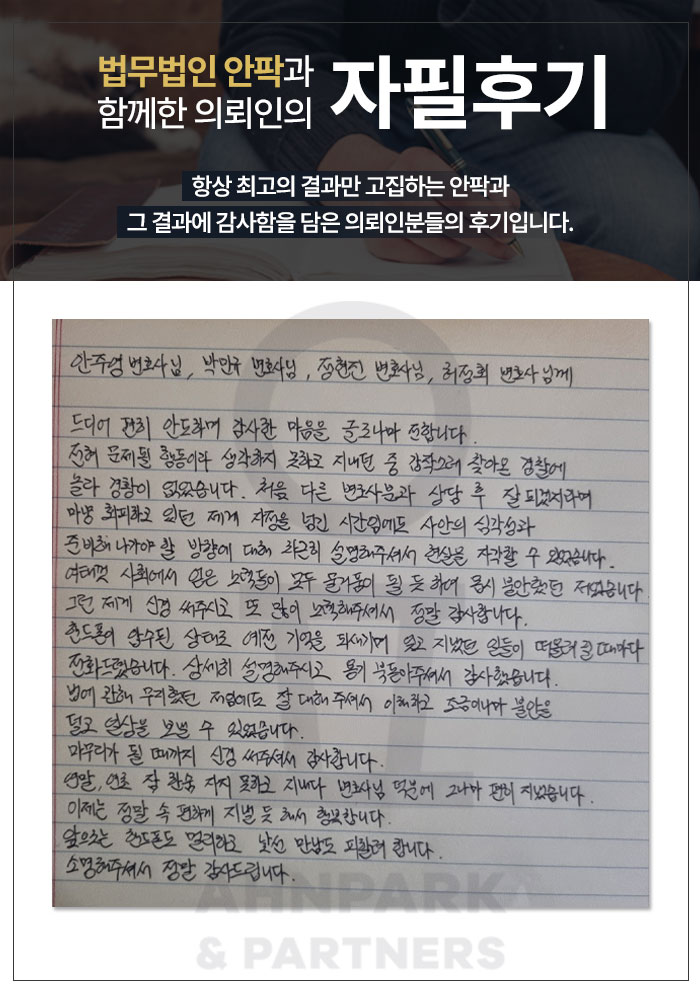 법무법인 안팍과
함께한 의뢰인의
자필후기
항상 최고의 결과만 고집하는 안팍과
그 결과에 감사함을 담은 의뢰인분들의 후기입니다.
안주영 변호사님, 박민규 변호사님, 정현진 변호사님, 허정회 변호사님께
드디어 편히 안도하며 감사한 마음을 글로나마 전합니다.
전혀 문제될 행동이라 생각하지 못하고 지내던 중 갑작스레 찾아온 경찰에
놀라 경황이 없었습니다. 처음 다른 변호사분과 상담 후 잘 되겠지라며
마냥 회피하고 있던 제게 자정을 넘긴 시간임에도 사안의 심각성과
준비해 나가야 할 방향에 대해 차근히 설명해주셔서 현실을 자각할 수 있었습니다.
여태껏 사회에서 쌓은 노력들이 모두 물거품이 될 듯 하여 몹시 불안했던 저였습니다
그런 제게 신경 써주시고 또 많이 노력해주셔서 정말 감사합니다.
핸드폰이 압수된 상태로 예전 기억을 되새기며 잊고 지냈던 일들이 떠올려질 때마다
전화드렸습니다. 상세히 설명해주시고 용기 북돋아주셔서 감사했습니다.
법에 관해 무지했던 저임에도 잘 대해 주셔서 이해하고 조금이나마 불안을
덜고 일상을 보낼 수 있었습니다.
마무리가 될 때까지 신경 써주셔서 감사합니다.
연말, 연초 잠 한숨 자지 못하고 지내다 변호사님 덕분에 그나마 편히 지냈습니다.
이제는 정말 속 편하게 지낼 듯 해서 행복합니다.
앞으로는 핸드폰도 멀리하고 낯선 만남도 피할려 합니다.
소명해주셔서 정말 감사드립니다.
AHNPARK
& PARTNERS